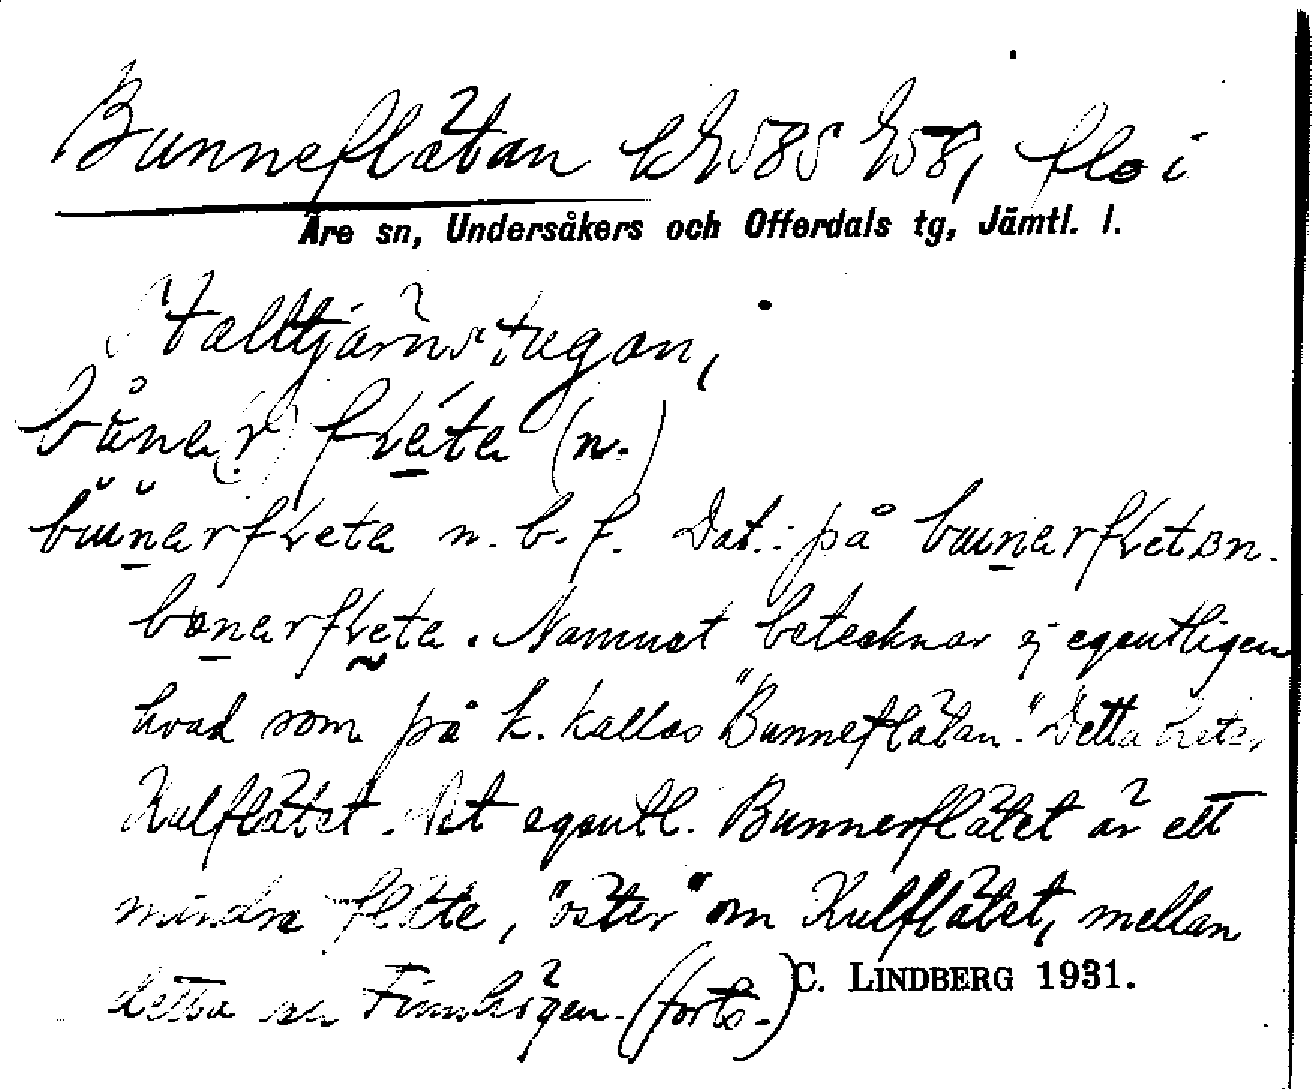 Bunneflätan k 585 58, flo i
Åre sn, Undersåkers och Offerdals tg, Jämtl. l.
Stalltjärnstugan,
(n.)
n. b. f. Dat.: på
Namnet betecknar ej egentligen
hvad som på k. kallas "Bunneflätan." Detta heter
Kulflätet. Det egentl. Bunnerflätet är ett
mindre fläte, "öster" om Kulflätet, mellan
detta och Finnhögen. (forts.)
C. LINDBERG 1931.